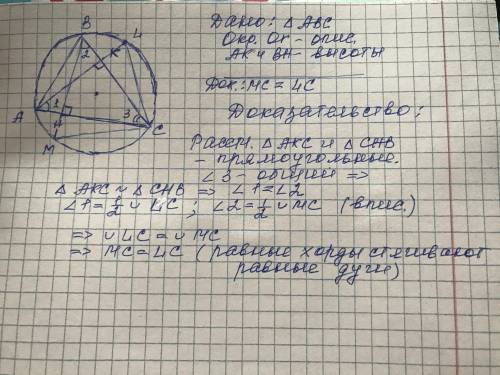 Дано: △ ABC
Окр. Ог - опис.
AK и BH - высоты
Док.: MC = LC
Доказательство:
B
L
K
2
A
1
H
3
C
M
Рассм. △ AKC и △ CHB
- прямоугольные.
∠3 - общий =>
△ AKC ~ △ CHB => ∠1 = ∠2
∠1 = 1/2 ∪ LC ; ∠2 = 1/2 ∪ MC (впис.)
=> ∪ LC = ∪ MC
=> MC = LC (равные хорды стягивают
равные дуги)